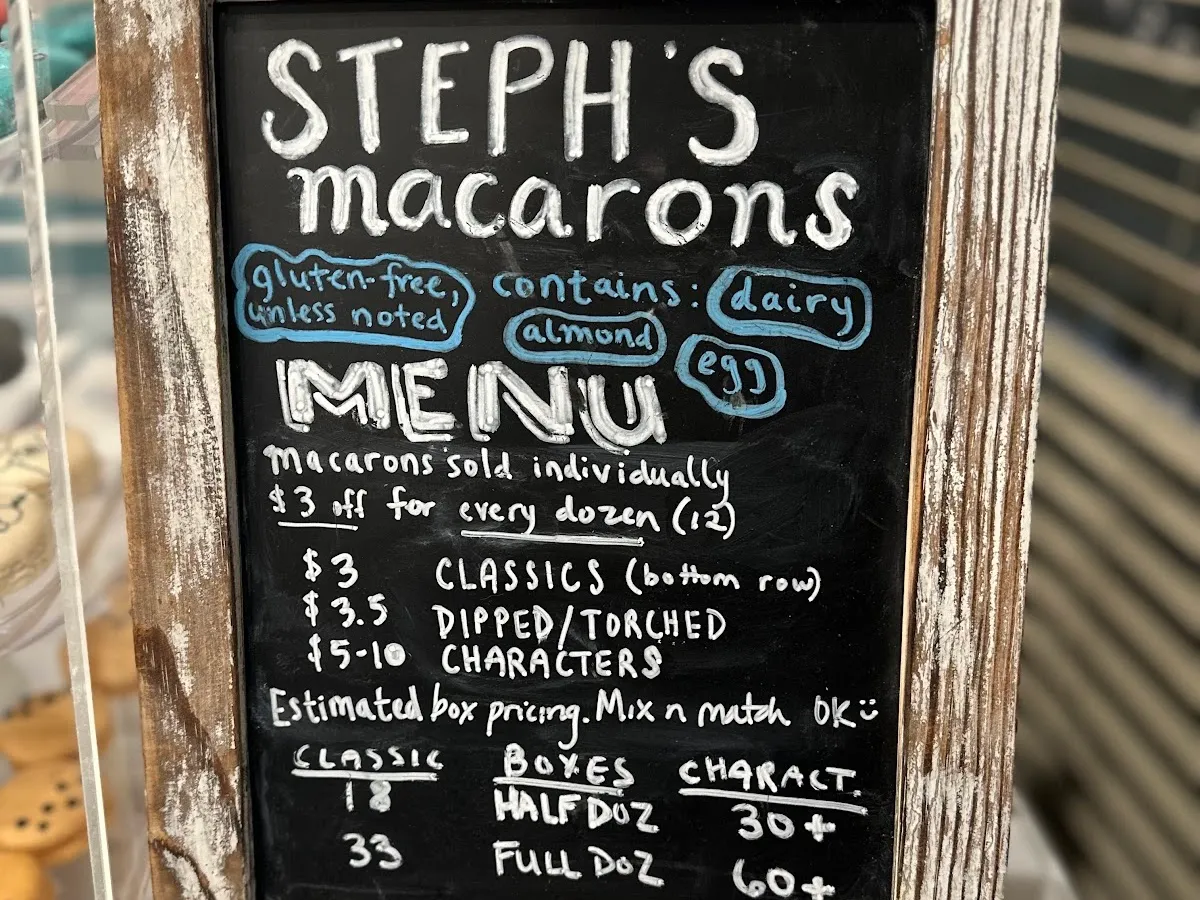 STEPH'S
macarons
gluten-free, contains: dairy
unless noted almond egg
MENU
macarons sold individually
$3 off for every dozen (12)
$3 CLASSICS (bottom row)
$3.5 DIPPED/TORCHED
$5-10 CHARACTERS
Estimated box pricing. Mix n match OK
CLASSIC BOXES CHARACT.
18 HALF DOZ 30+
33 FULL DOZ 60+